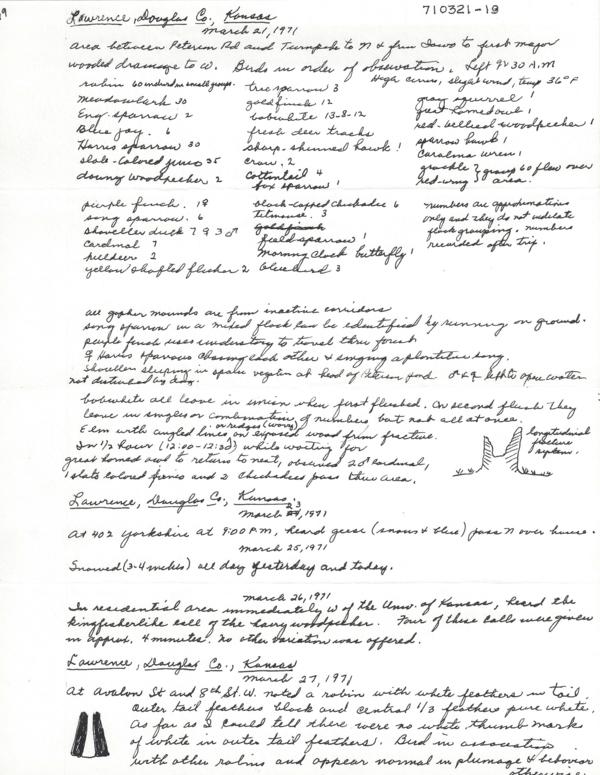 9
710321-19
Lawrence, Douglas Co., Kansas
March 21, 1971
Area between Peterson Rd and Turnpike to N & from Iowa to first major
wooded drainage to W. Birds in order of observation. Left 9:30 A.M
High cirrus, slight wind, temp 36°F
robin 60 in small groups.
meadowlark 30
Eng. sparrow 2
Blue jay. 6
Harris sparrow 30
slate-colored junco 25
downy woodpecker 2
tree sparrow 3
goldfinch 12
bobwhite 13-8-12
fresh deer tracks
sharp-shinned hawk 1
crow. 2
cottontail 4
fox sparrow 1
gray squirrel 1
great horned owl 1
red-bellied woodpecker 1
sparrow hawk 1
Carolina wren 1
grackle } group 60 flew over
red-wing } area.
purple finch. 18
song sparrow. 6
shoveller duck 7♀ 3♂
cardinal 7
killdeer 2
yellow shafted flicker 2
black-capped chickadee 6
titmouse. 3
goldfinch
field sparrow 1
Morning cloak butterfly 1
bluebird 3
numbers are approximations
only and they do not indicate
flock grouping. numbers
recorded after trip.
all gopher mounds are from inactive corridors
song sparrow in a mixed flock can be identified by running on ground.
purple finch uses understory to travel thru forest
Harris sparrows chasing each other & singing a plaintive song.
Shovellers sleeping in sparse vegetation at head of Peterson pond ♂ & ♀ left to open water
not disturbed by dog.
bobwhite all leave in unison when first flushed. On second flush they
leave in singles or combination of numbers, but not all at once.
Elm with angled lines or ridges (worn) on exposed wood from fracture.
longitudinal
fracture
system.
In 1/2 hour (12:00-12:30) while waiting for
great horned owl to return to nest, observed 2♂ cardinal,
1 slate colored junco and 2 chickadees pass thru area.
Lawrence, Douglas Co., Kansas.
March 23, 1971
At 402 Yorkshire at 9:00 P.M, heard geese (snows & blue) pass N over house.
March 25, 1971
Snowed (3-4 inches) all day yesterday and today.
March 26, 1971
In residential area immediately W of the Univ. of Kansas, heard the
kingfisherlike call of the hairy woodpecker. Four of these calls were given
in approx. 4 minutes. No other variation was offered.
Lawrence, Douglas Co., Kansas
March 27, 1971
At Avalon St and 8th St. W. noted a robin with white feathers in tail
outer tail feathers black and central 1/3 feathers pure white.
As far as I could tell there were no white thumb mark
of white in outer tail feathers. Bird in association
with other robins and appear normal in plumage & behavior
otherwise.